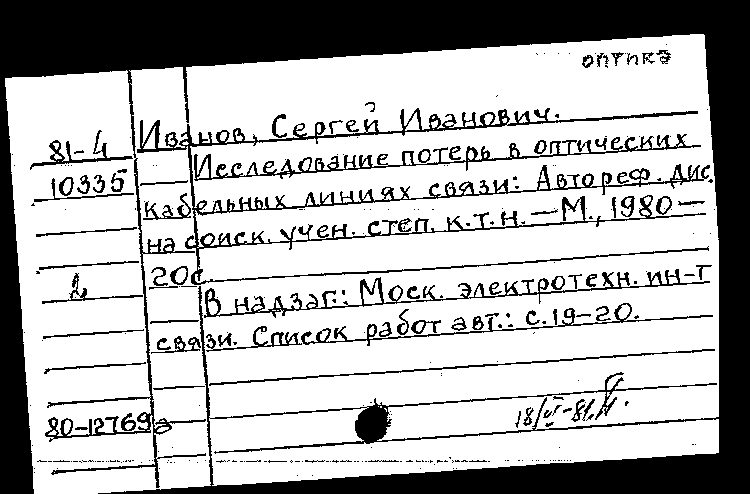 оптика
81-4 Иванов, Сергей Иванович.
10335 Исследование потерь в оптических
кабельных линиях связи: Автореф. дис.
на соиск. учен. степ. к.т.н. — М., 1980 —
20с.
В надзаг.: Моск. электротехн. ин-т
связи. Список работ авт.: с.19-20.
80-12769а
18/VI-81.